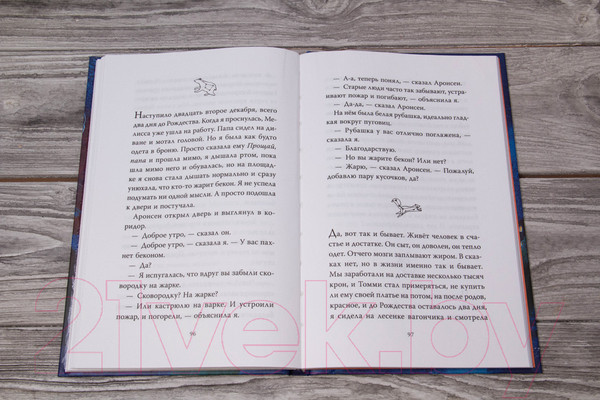 Наступило двадцать второе декабря, всего
два дня до Рождества. Когда я проснулась, Ме-
лисса уже ушла на работу. Папа сидел на ди-
ване и мотал головой. Но я была как будто
одета в броню. Просто сказала ему Прощай,
папа и прошла мимо, а дышала ртом, пока
шла мимо него и обувалась, но на площад-
ке я снова стала дышать нормально и сразу
унюхала, что кто-то жарит бекон. Я не успела
подумать ни одной мысли. А просто подошла
к двери и постучала.
Аронсен открыл дверь и выглянул в ко-
ридор.
— Доброе утро, — сказал он.
— Доброе утро, — сказала я. — У вас пах-
нет беконом.
— Да?
— Я испугалась, что вдруг вы забыли ско-
вородку на жарке.
— Сковородку? На жарке?
— Или кастрюлю на варке. И устроили
пожар, и погорели, — объяснила я.
96
— А-а, теперь понял, — сказал Аронсен.
— Старые люди часто так забывают, устра-
ивают пожар и погибают, — объяснила я.
— Да-да, — сказал Аронсен.
На нём была белая рубашка, идеально глад-
кая вокруг пуговиц.
— Рубашка у вас отлично поглажена, —
сказала я.
— Благодарствую.
— Но вы жарите бекон? Или нет?
— Жарю, — сказал Аронсен. — Пожалуй,
добавлю пару кусочков, да!
Да, вот так и бывает. Живёт человек в сча-
стье и достатке. Он сыт, он доволен, он тепло
одет. Отчего мозги заплывают жиром. В сказ-
ках нет, но в жизни именно так и бывает.
Мы заработали на доставке несколько тысяч
крон, и Томми стал примеряться, не купить
ли ему своей платье на потом, на после родов,
красное, и до Рождества оставалось два дня,
я сидела на лесенке вагончика и смотрела
97
21vek.by